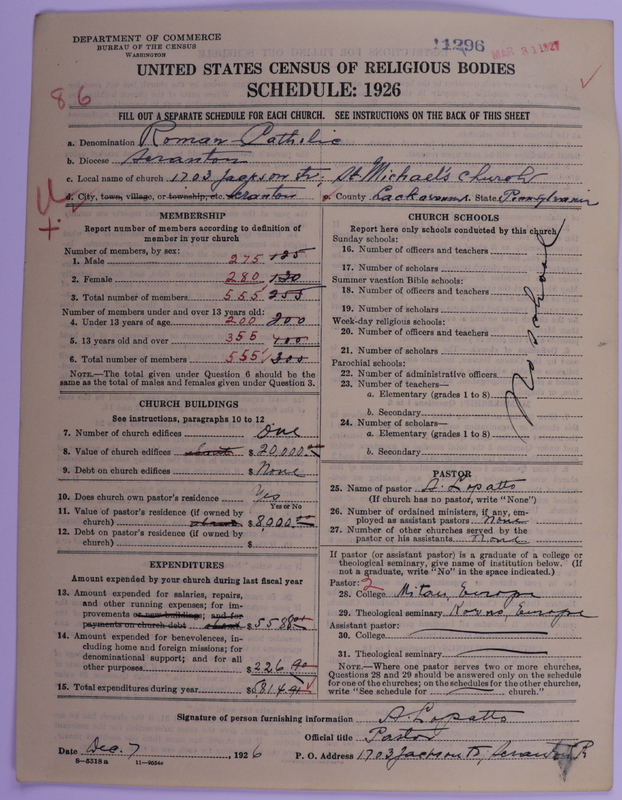 DEPARTMENT OF COMMERCE
BUREAU OF THE CENSUS
WASHINGTON
11296
MAR 31 1927
UNITED STATES CENSUS OF RELIGIOUS BODIES
SCHEDULE: 1926
86
FILL OUT A SEPARATE SCHEDULE FOR EACH CHURCH. SEE INSTRUCTIONS ON THE BACK OF THIS SHEET
a. Denomination Roman Catholic
b. Diocese Scranton
c. Local name of church 1703 Jackson Str, St Michael's Church
d. City, town, village, or township, etc. Scranton e. County Lackawanna State Pennsylvania
MEMBERSHIP
Report number of members according to definition of
member in your church
Number of members, by sex:
1. Male 275 125
2. Female 280 130
3. Total number of members 555 255
Number of members under and over 13 years old:
4. Under 13 years of age 200 200
5. 13 years old and over 355 100
6. Total number of members 555 300
NOTE.—The total given under Question 6 should be
same as the total of males and females given under Question 3.
CHURCH BUILDINGS
See instructions, paragraphs 10 to 12
7. Number of church edifices One
8. Value of church edifices about $ 20,000.00
9. Debt on church edifices $ None
10. Does church own pastor's residence Yes
Yes or No
11. Value of pastor's residence (if owned by
church) about $ 8,000.00
12. Debt on pastor's residence (if owned by
church) $
EXPENDITURES
Amount expended by your church during last fiscal year
13. Amount expended for salaries, repairs,
and other running expenses; for im-
provements or new buildings; and for
payments on church debt about $ 5588.01
14. Amount expended for benevolences, in-
cluding home and foreign missions; for
denominational support; and for all
other purposes $ 226.90
15. Total expenditures during year $ 5814.91
CHURCH SCHOOLS
Report here only schools conducted by this church
Sunday schools:
16. Number of officers and teachers
17. Number of scholars
Summer vacation Bible schools:
18. Number of officers and teachers
19. Number of scholars
Week-day religious schools:
20. Number of officers and teachers
21. Number of scholars
Parochial schools:
22. Number of administrative officers
23. Number of teachers—
a. Elementary (grades 1 to 8)
b. Secondary
24. Number of scholars—
a. Elementary (grades 1 to 8)
b. Secondary
No school
PASTOR
25. Name of pastor A. Lopatto
(If church has no pastor, write "None")
26. Number of ordained ministers, if any, em-
ployed as assistant pastors None
27. Number of other churches served by the
pastor or his assistants None
If pastor (or assistant pastor) is a graduate of a college or
theological seminary, give name of institution below. (If
not a graduate, write "No" in the space indicated.)
Pastor: 2
28. College Mitau, Europe
29. Theological seminary Kovno, Europe
Assistant pastor:
30. College
31. Theological seminary
NOTE.—Where one pastor serves two or more churches,
Questions 28 and 29 should be answered only on the schedule
for one of the churches; on the schedules for the other churches,
write "See schedule for church."
Signature of person furnishing information A. Lopatto
Official title Pastor
Date Dec. 7, 1926 P. O. Address 1703 Jackson St, Scranton P
8—5318 a